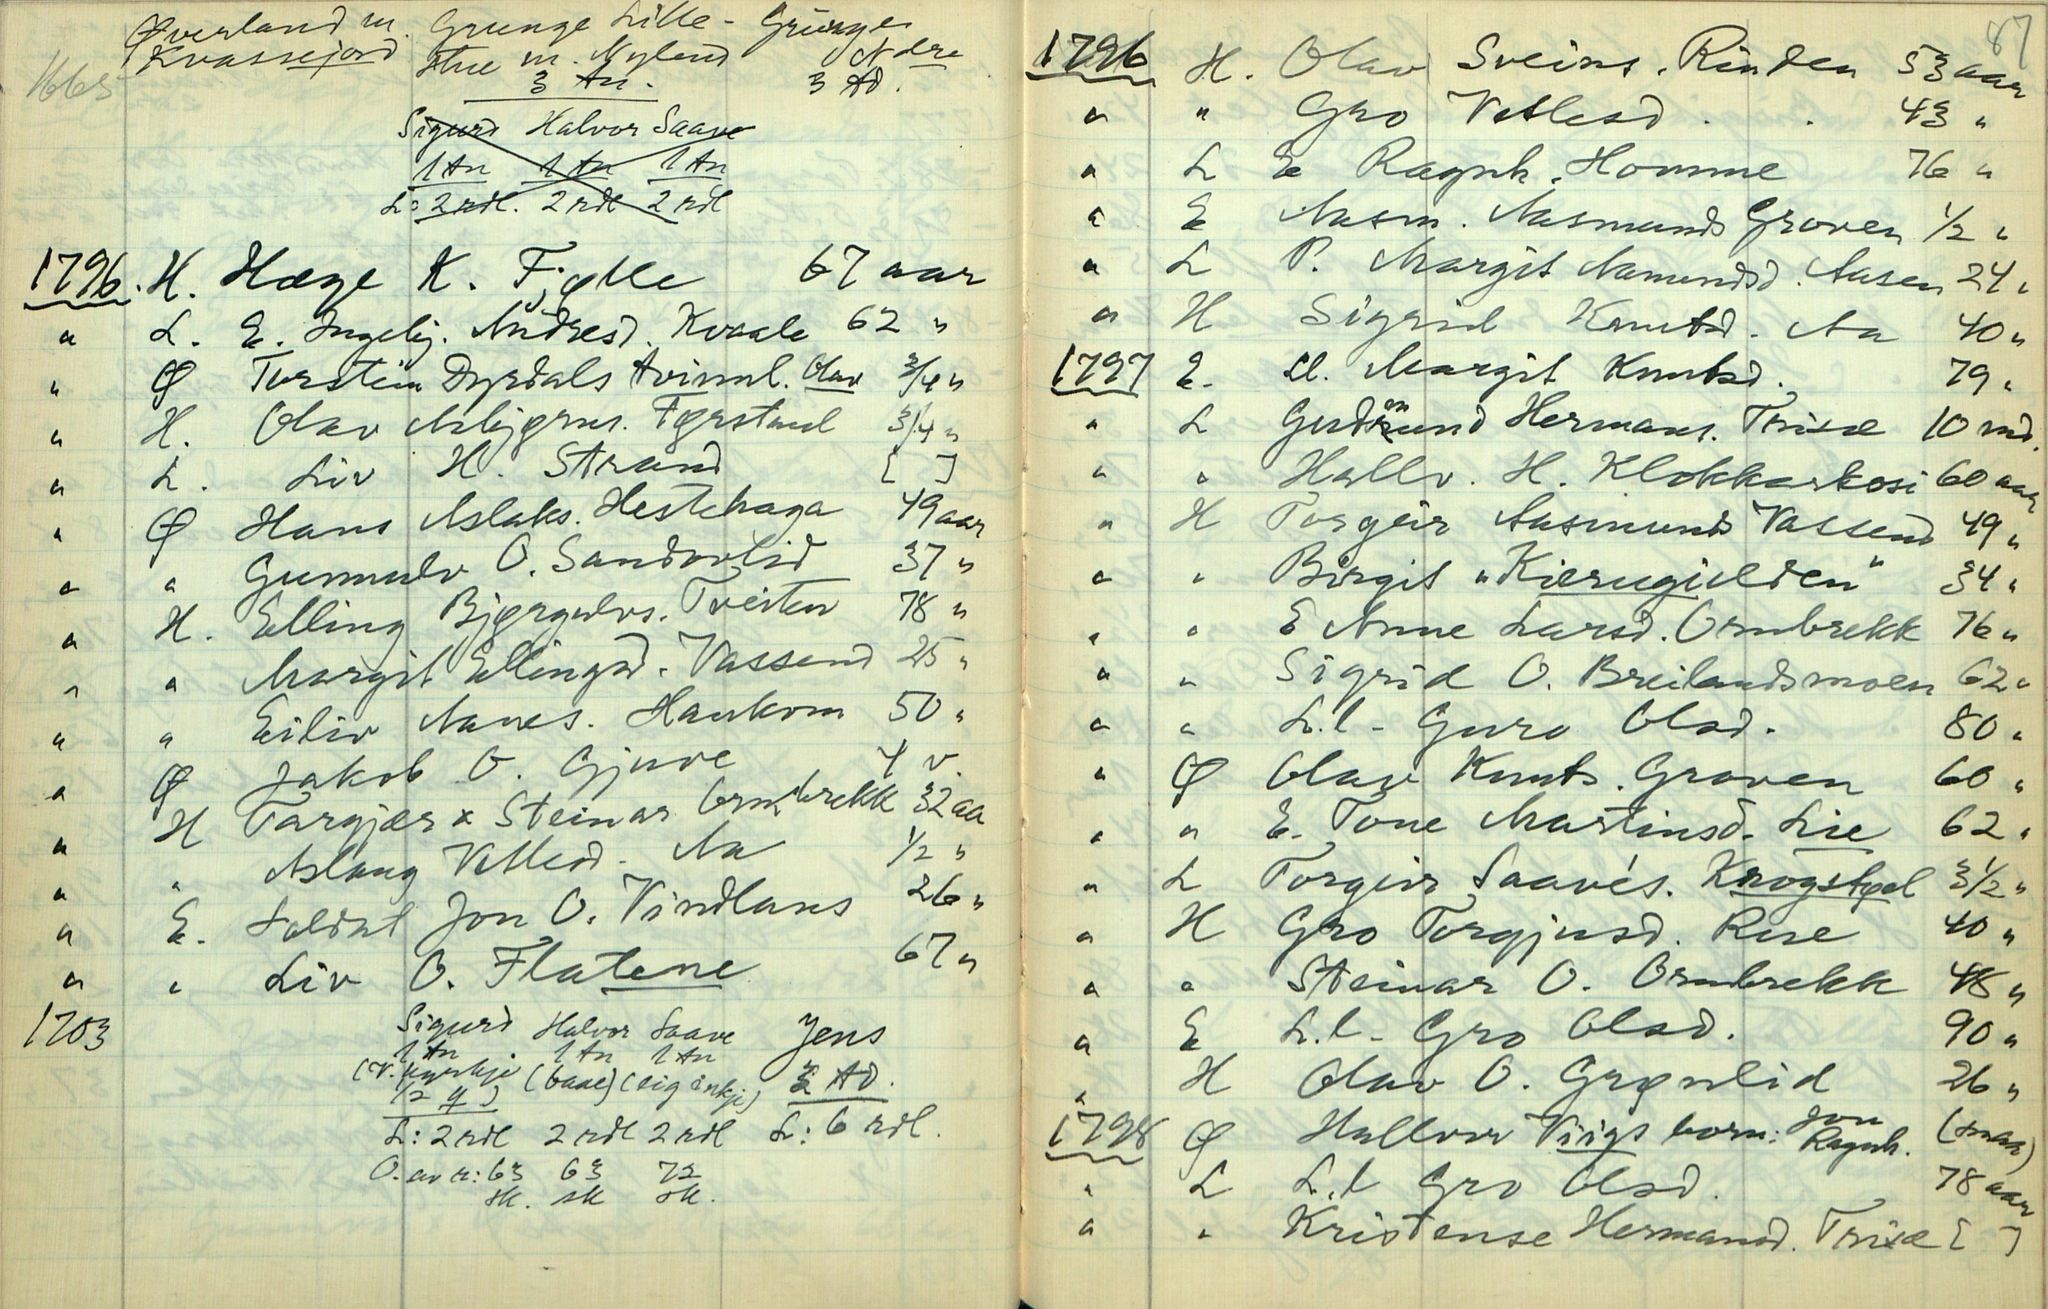 Øverland m. Grunge Lille- Grunge
Kvassejord Stue m. Nyland Ndre
1665 3 An. 3 Ad.
Sigurd Halvor Saave
1 An 1 An 1 An
L: 2 rdl. 2 rdl 2 rdl
1796. H. Hæge K. Fjølle 67 aar
" L. E. Ingebj. Andresd. Kvaale 62 "
" Ø Torstein Dyrdals tvinnl. Olav 3/4 "
" H. Olav Asbjørns. Førstaul 3/4 "
" L. Liv H. Strand [ ]
" Ø Hans Aslaks. Hestehaga 49 aar
" " Gunnulv O. Sandovlid 37 "
" H. Elling Bjørgulvs. Tveiten 78 "
" " Margit Ellingsd. Vassend 25 "
" " Eiliv Aanes. Haukom 50 "
" Ø Jakob O. Gjuve 4 v.
" H Targjær x Steinar Ormbrekk 32 aa
" " Aslaug Vetlesd. Aa 1/2 "
" E. Soldat Jon O. Vindlaus 26 "
" " Liv O. Flatene 67 "
1703 Sigurd Halvor Saave Jens
1 An 1 An 1 An
(V. kyrkje (baae) (eig enkje) 3 Ad.
1/2
L: 2 rdl 2 rdl 2 rdl L: 6 rdl.
O. av r: 63 63 72
sk. sk sk.
87
1796 H. Olav Sveins. Rinden 53 aar
" " Gro Vetlesd. 43 "
" L E Ragnh. Homme 76 "
" E Aasm. Aasmunds Groven 1/2 "
" L P. Margit Aamundsd. Aasen 24 "
" H Sigrid Knutsd. Aa 40 "
1797 E. Margit Knutsd. 79 "
" L Gudmund Hermans. Trisæ 10 md.
" " Hallv. H. Klokkarkosi 60 aar
" H Torgeir Aasmunds Vassend 49 "
" " Birgit "Kierugiulden" 34 "
" " E Anne Larsd. Ormbrekk 76 "
" " Sigrid O. Breilandsmoen 62 "
" " L.l- Guro Olsd. 80 "
" Ø Olav Knuts. Groven 60 "
" " E. Tone Martinsd. Lie 62 "
" L Torgeir Saavés. Krogstøl 3 1/2 "
" H Gro Torgjusd. Rue 40 "
" " Steinar O. Ormbrekk 48 "
" E L.l- Gro Olsd. 90 "
" H Olav O. Grønlid 26 "
1798 Ø Hallvor Viigs born: Jon Ragnh. (smaa)
" L L.l Gro Olsd. 78 aar
" " Kristense Hermansd. Trisæ [ ]